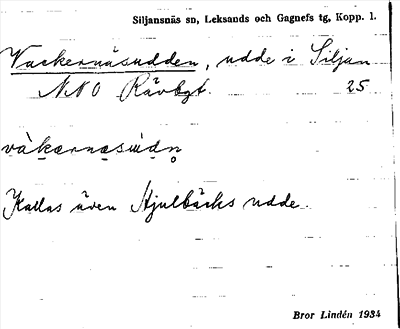 Siljansnäs sn, Leksands och Gagnefs tg, Kopp. l.
Vackernäsudden, udde i Siljan
NNO Rävbgt. 25
vàkærnæsùdn̥
Kallas även Hjulbäcks udde.
Bror Lindén 1934